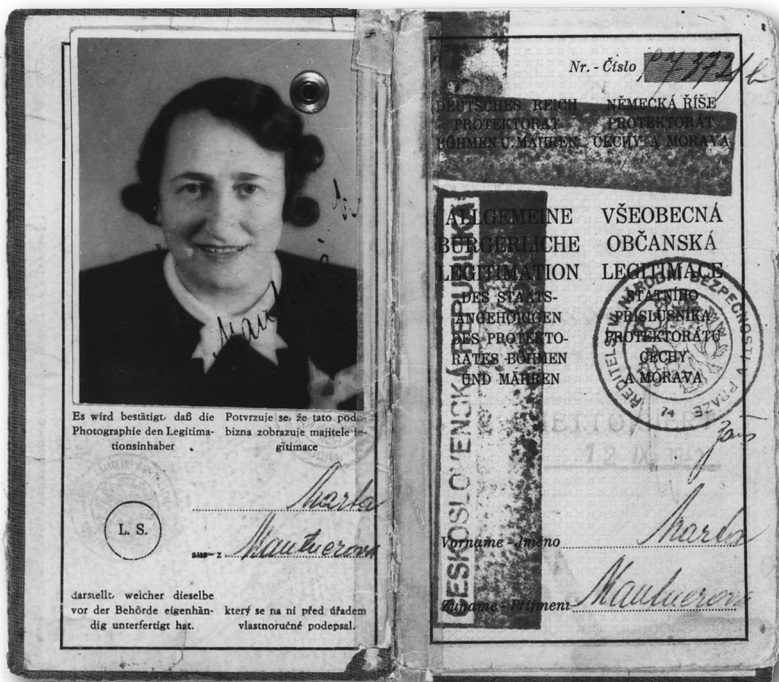 Es wird bestätigt, daß die
Photographie den Legitima-
tionsinhaber
Potvrzuje se, že tato pod-
bizna zobrazuje majitele le-
gitimace
Marta
L. S.
aus - z Mautnerova
darstellt, welcher dieselbe
vor der Behörde eigenhän-
dig unterfertigt hat.
který se na ní před úřadem
vlastnoručně podepsal.
Nr. - Číslo
DEUTSCHES REICH
PROTEKTORAT
BÖHMEN U. MÄHREN
NĚMECKÁ ŘÍŠE
PROTEKTORÁT
ČECHY A MORAVA
ALLGEMEINE
BÜRGERLICHE
LEGITIMATION
DES STAATS-
ANGEHÖRIGEN
DES PROTEKTO-
RATES BÖHMEN
UND MÄHREN
VŠEOBECNÁ
OBČANSKÁ
LEGITIMACE
STÁTNÍHO
PŘÍSLUŠNÍKA
PROTEKTORÁTU
ČECHY
A MORAVA
ČESKOSLOVENSKÁ REPUBLIKA
ŘEDITELSTVÍ NÁRODNÍ BEZPEČNOSTI V PRAZE
74
12 IX.
Vorname - Jméno Marta
Zuname - Příjmení Mautnerova